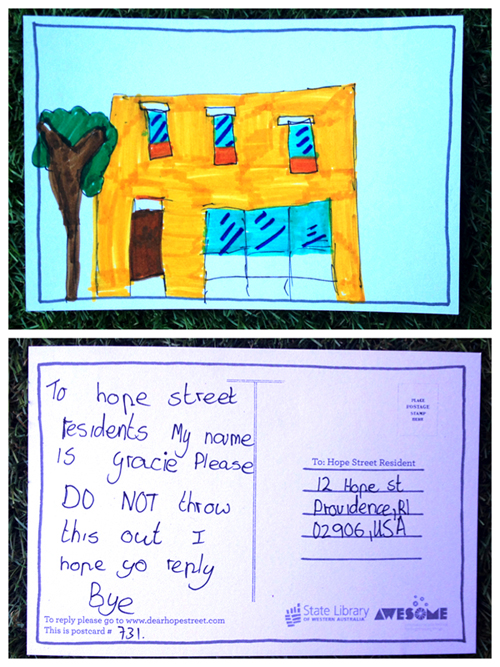 To hope street
residents My name
is gracie Please
DO NOT throw
this out I
hope yo reply
Bye
To reply please go to www.dearhopestreet.com
This is postcard # 731.
PLACE
POSTAGE
STAMP
HERE
To: Hope Street Resident
12 Hope st
Providence, RI
02906, USA
State Library
OF WESTERN AUSTRALIA
AWESOME